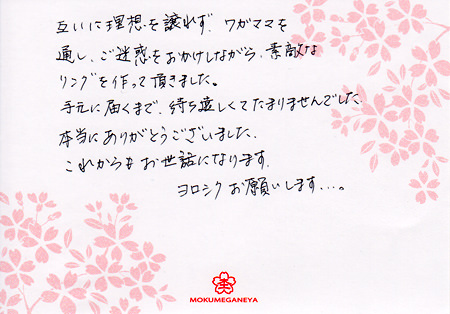 互いに理想を譲れず、ワガママを
通し、ご迷惑をおかけしながら、素敵な
リングを作って頂きました。
手元に届くまで、待ち遠しくてたまりませんでした。
本当にありがとうございました。
これからもお世話になります。
ヨロシクお願いします...。
MOKUMEGANEYA